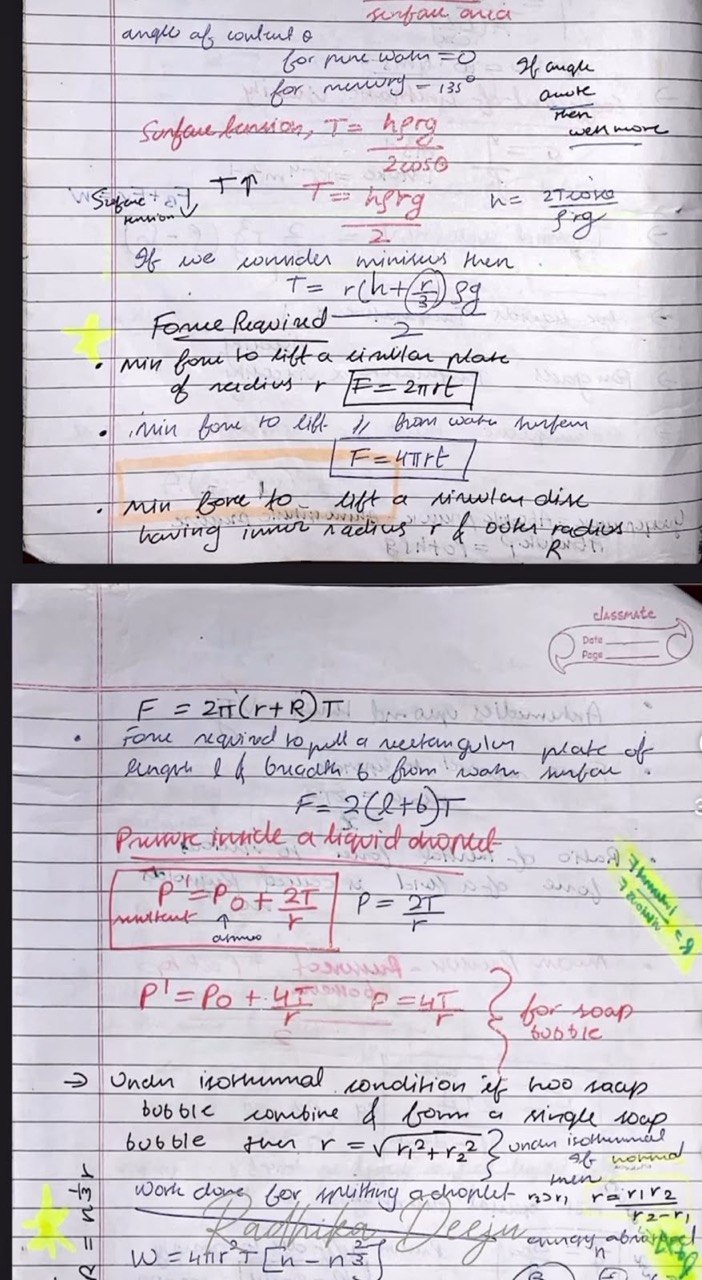 surface area
angle of contact θ
for pure water = 0
for mercury - 135°
If angle
acute
then
well more
Surface tension, T = hρrg
2cosθ
Surface tension ↓ T↑ T = hρrg
2
h = 2Tcosθ
ρrg
If we consider miniscus then
T = r(h+(r/3)ρg
2
Force Required
• Min force to lift a circular plate
of radius r F = 2πrt
• Min force to lift || from water surface
F = 4πrt
• Min force to lift a circular disc
having inner radius r & outer radius
R
classmate
Date
Page
F = 2π(r+R)T
• Force required to pull a rectangular plate of
length l & breadth b from water surface.
F = 2(l+b)T
Pressure inside a liquid droplet
P' = P0 + 2T/r P = 2T/r
resultant ↑
atmos
P' = P0 + 4T/r P = 4T/r } for soap
bubble
→ Under isothermal condition if two soap
bubble combine & form a single soap
bubble then r = √r1²+r2² } under isothermal
If normal
then
Work done for splitting a droplet r2>r1 r = r1r2
r2-r1
R = n⅓r
Radhika Deeju
energy absorbed
W = 4πr²T[n - n⅔]